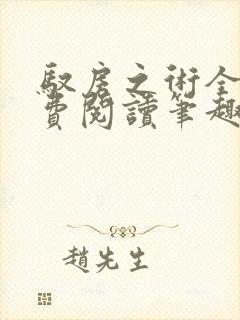 馭房之術全
費閱讀筆趣
趙先生